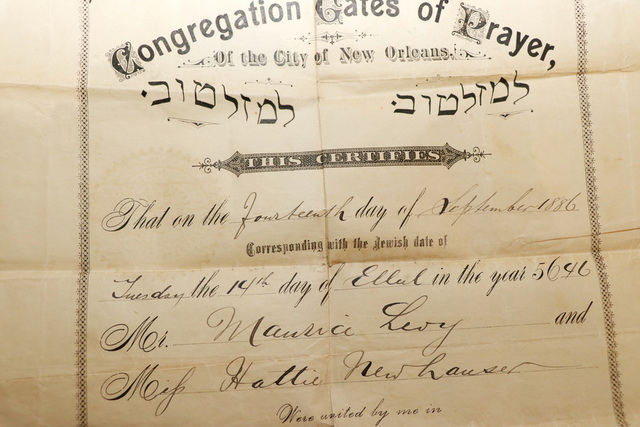 Congregation Gates of Prayer,
Of the City of New Orleans.
למזלטוב. למזלטוב.
THIS CERTIFIES
That on the fourteenth day of September 1886
Corresponding with the Jewish date of
Tuesday the 14th day of Ellul in the year 5646
Mr. Maurice Levy and
Miss Hattie Newhauser
Were united by me in